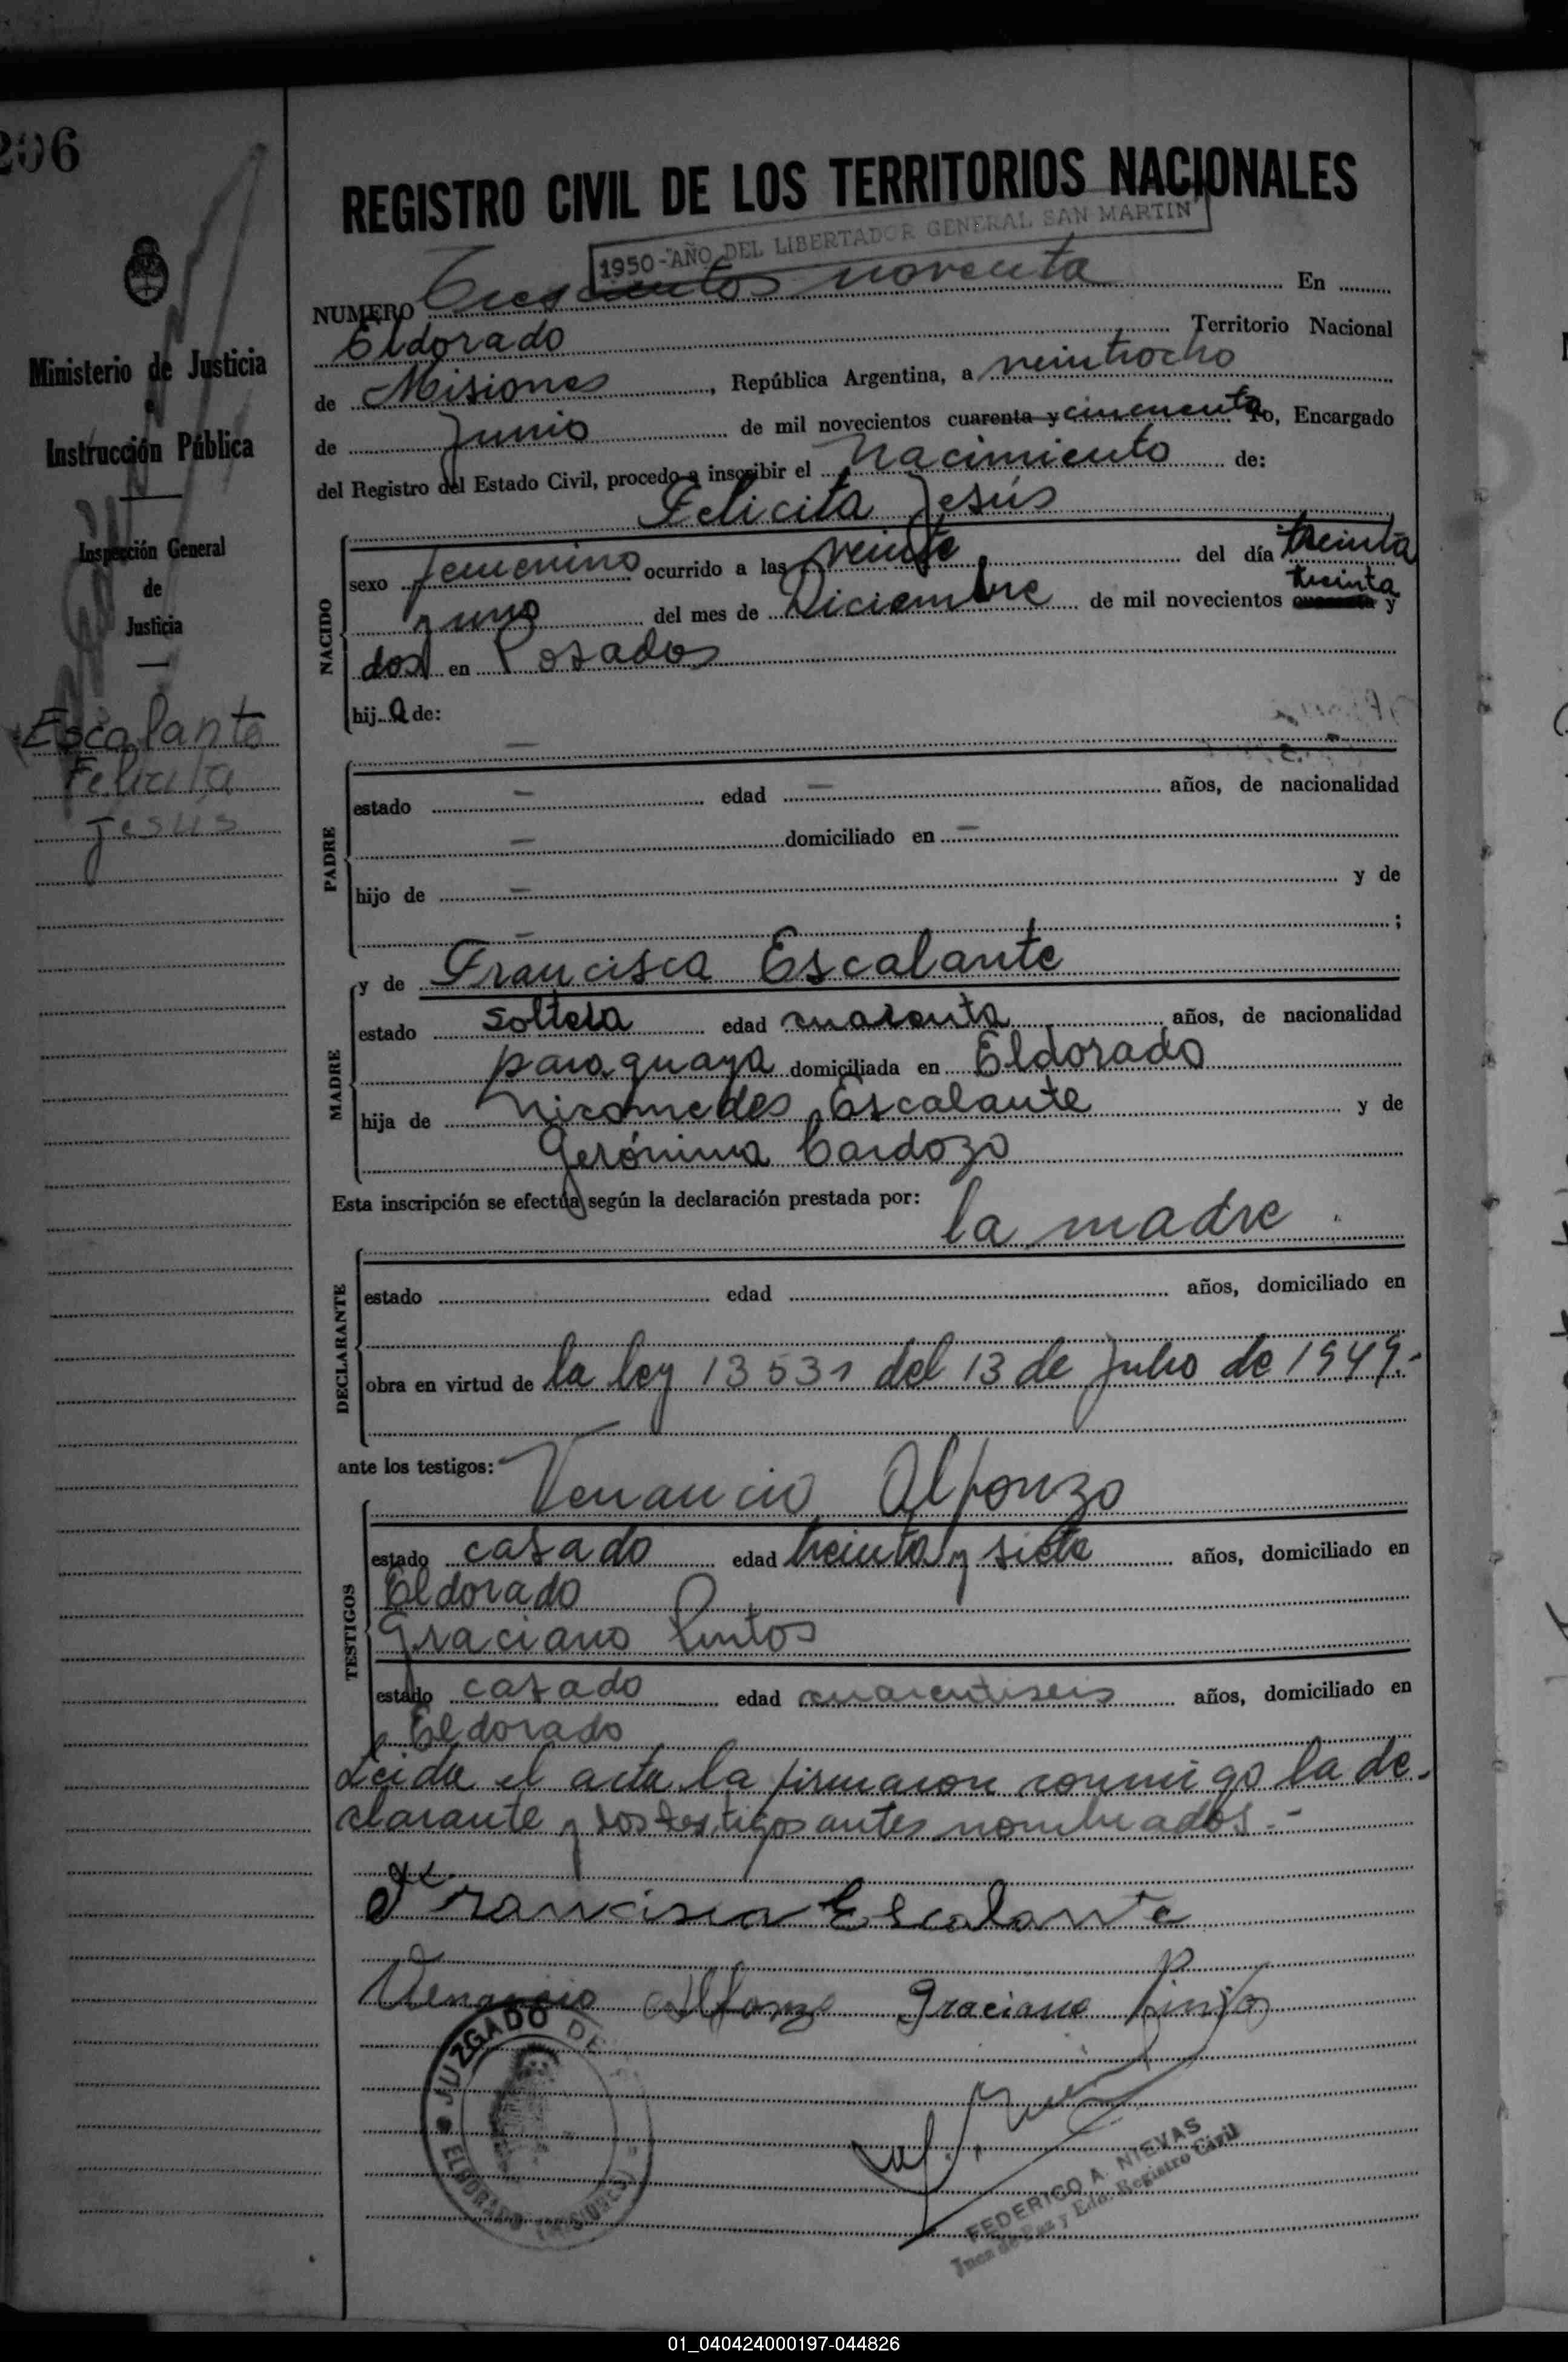 206
Ministerio de Justicia
e
Instrucción Pública
Inspección General
de
Justicia
Escalante
Felicita
Jesus
REGISTRO CIVIL DE LOS TERRITORIOS NACIONALES
1950-AÑO DEL LIBERTADOR GENERAL SAN MARTIN
NUMERO Trescientos noventa En
Eldorado Territorio Nacional
de Misiones, República Argentina, a veintiocho
de Junio de mil novecientos cuarenta y cincuenta Yo, Encargado
del Registro del Estado Civil, procedo a inscribir el Nacimiento de:
Felicita Jesús
NACIDO
sexo femenino ocurrido a las veinte del día treinta
y uno del mes de Diciembre de mil novecientos treinta y
dos en Posadas
hij a de:
PADRE
estado - edad - años, de nacionalidad
- domiciliado en -
hijo de - y de
- ;
MADRE
y de Francisca Escalante
estado soltera edad cuarenta años, de nacionalidad
paraguaya domiciliada en Eldorado
hija de Nicomedes Escalante y de
Gerónima Cardozo
Esta inscripción se efectúa según la declaración prestada por:
la madre.
DECLARANTE
estado edad años, domiciliado en
obra en virtud de la ley 13531 del 13 de Julio de 1949.-
ante los testigos:
Venancio Alfonzo
TESTIGOS
estado casado edad treinta y siete años, domiciliado en
Eldorado
Graciano Pintos
estado casado edad cuarentiseis años, domiciliado en
Eldorado
Leida el acta la firmaron conmigo la de-
clarante y los testigos antes nombrados.-
Francisca Escalante
Venancio Alfonzo Graciano Pintos
JUZGADO DE
ELDORADO (MISIONES)
FEDERICO A. NIEVAS
Juez de Paz y Edo. Registro Civil
01_040424000197-044826